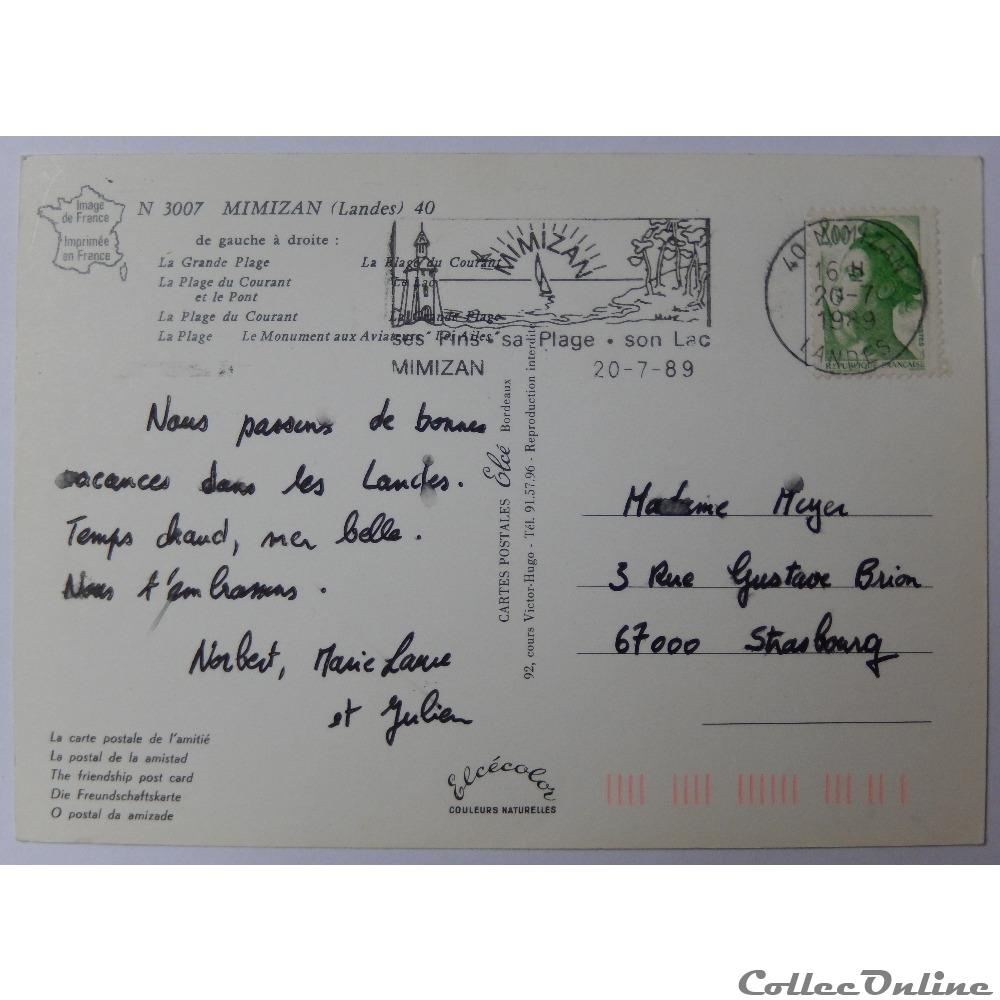 Image
de France
Imprimée
en France
N 3007 MIMIZAN (Landes) 40
de gauche à droite :
La Grande Plage La Plage du Courant
La Plage du Courant Le Lac
et le Pont
La Plage du Courant La Grande Plage
La Plage Le Monument aux Aviateurs "Les Ailes"
A MIMIZAN
ses Pins • sa Plage • son Lac
MIMIZAN 20-7-89
40 MIMIZAN
16 H
20-7
1989
LANDES
RÉPUBLIQUE FRANÇAISE
Nous passons de bonnes
vacances dans les Landes.
Temps chaud, mer belle.
Nous t'embrassons.
Norbert, Marie Laure
et Julien
CARTES POSTALES Elcé Bordeaux
92, cours Victor-Hugo - Tél. 91.57.96 - Reproduction interdite
Madame Meyer
3 Rue Gustave Brion
67000 Strasbourg
La carte postale de l'amitié
La postal de la amistad
The friendship post card
Die Freundschaftskarte
O postal da amizade
Elcécolor
COULEURS NATURELLES
CollecOnline